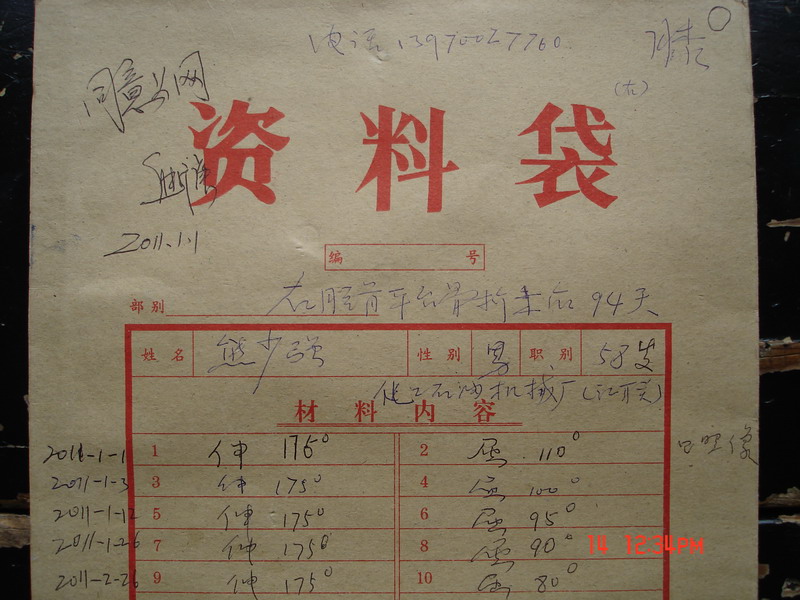 电话 13970027760
同意上网
(右)
资料袋
2011.1.1
编 号
部别 右胫骨平台骨折术后 94天
姓名 熊少强 性别 男 职别 58岁
化工石油机械厂(江西)
材料内容
2011-1-1 1 伸 175° 2 屈 110°
已照像
2011-1-3 3 伸 175° 4 屈 100°
2011-1-12 5 伸 175° 6 屈 95°
2011-1-26 7 伸 175° 8 屈 90°
14 12:34PM
2011-2-26 9 伸 175° 10 屈 80°